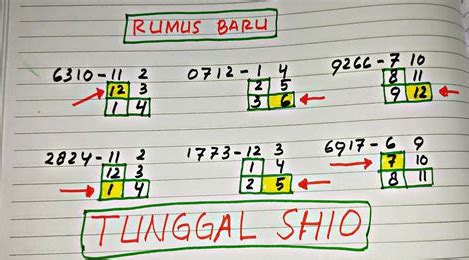 RUMUS BARU
6310-11 2
12 3
1 4
0712-1 4
2 5
3 6
9266-7 10
8 11
9 12
2824-11 2
12 3
1 4
1773-12 3
1 4
2 5
6917-6 9
7 10
8 11
TUNGGAL SHIO